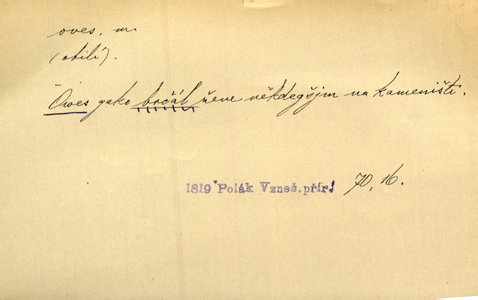 oves, m.
(obilí).
Owes gako brčál řeve někdegšjm na kameništi.
1819 Polák Vzneš. přír. 70, 16.